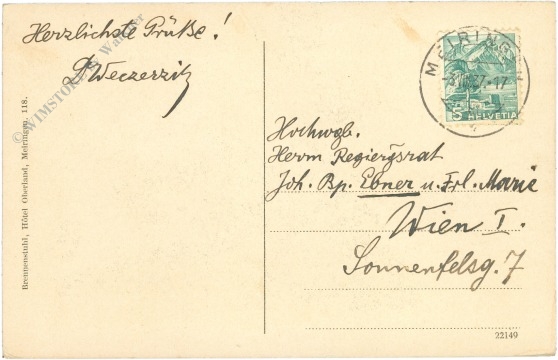 Herzlichste Grüße!
Brennenstuhl, Hôtel Oberland, Meiringen. 118.
MEIRINGEN
37-17
5 HELVETIA
Hochwgb.
Herrn Regiergsrat
Joh. Bp. Ebner u. Frl. Marie
Wien I.
Sonnenfelsg. 7
22149